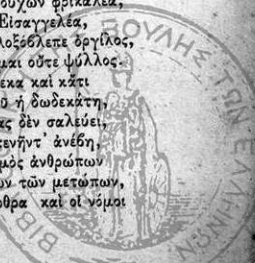 ούχων φρικαλέα,
Εἰσαγγελέα,
λοξόβλεπε ὀργίλος,
μαι οὔτε ψύλλος.
εκα καὶ κάτι
ῦ ἡ δωδεκάτη,
ας δὲν σαλεύει,
τενήντ' ἀνέβη,
μὸς ἀνθρώπων
ων τῶν μετώπων,
θρα καὶ οἱ νόμοι